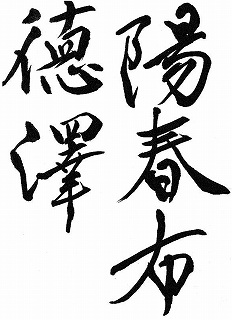 陽春布
德澤